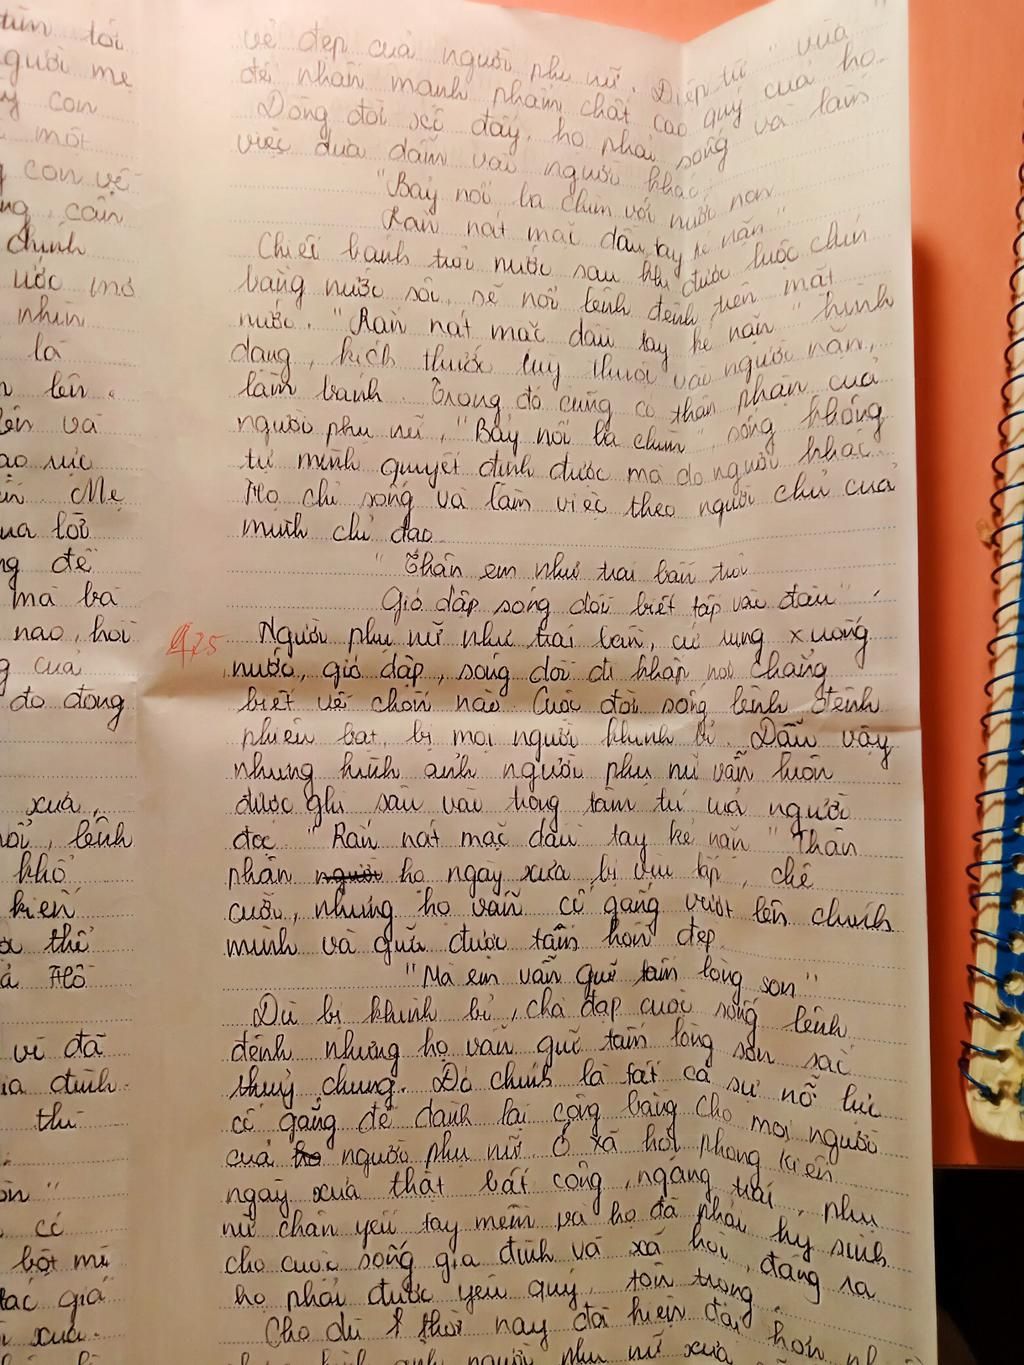 tìm tòi
người mẹ
con
một
con về
cần
chính
ước mơ
nhìn
là
lên.
và
sức
Mẹ
lời
để
mà bà
nao, hỏi
của
do đồng
xưa,
lênh
khổ
kiến
thể
Hồ
vì đã
gia đình.
thì
có
bột mì
tác giả
xưa.
vẻ đẹp của người phụ nữ. Điệp từ "vừa"
để nhấn mạnh phẩm chất cao quý của họ.
Dòng đời xô đẩy, họ phải sống và làm
việc dựa dẫm vào người khác.
"Bảy nổi ba chìm với nước non
Rắn nát mặc dầu tay kẻ nặn"
Chiếc bánh trôi nước sau khi được luộc chín
bằng nước sôi, sẽ nổi lênh đênh trên mặt
nước. "Rắn nát mặc dầu tay kẻ nặn" hình
dạng, kích thước tùy thuộc vào người nặn,
làm bánh. Trong đó cũng có thân phận của
người phụ nữ, "Bảy nổi ba chìm" sống không
tự mình quyết định được mà do người khác.
Họ chỉ sống và làm việc theo người chủ của
mình chỉ đạo.
"Thân em như trái bần trôi
Gió dập sóng dồi biết tấp vào đâu".
Người phụ nữ như trái bần, cứ rụng xuống
nước, gió dập, sóng dồi đi khắp nơi chẳng
biết về chốn nào. Cuộc đời sống lênh đênh
phiêu bạt, bị mọi người khinh bỉ. Dẫu vậy
nhưng hình ảnh người phụ nữ vẫn luôn
được ghi sâu vào trong tâm trí của người
đọc. "Rắn nát mặc dầu tay kẻ nặn" Thân
phận người họ ngày xưa bị vùi lấp, chê
cười, nhưng họ vẫn cố gắng vượt lên chính
mình và giữ được tâm hồn đẹp.
"Mà em vẫn giữ tấm lòng son"
Dù bị khinh bỉ, chà đạp cuộc sống lênh
đênh nhưng họ vẫn giữ tấm lòng son sắc
thuỷ chung. Đó chính là tất cả sự nỗ lực
cố gắng để dành lại công bằng cho mọi người
của họ người phụ nữ. Ở xã hội phong kiến
ngày xưa thật bất công, ngang trái, phụ
nữ chân yếu tay mềm và họ đã phải hy sinh
cho cuộc sống gia đình và xã hội, đáng ra
họ phải được yêu quý, tôn trọng.
Cho dù ở thời nay đã hiện đại hơn
hình ảnh người phụ nữ xưa